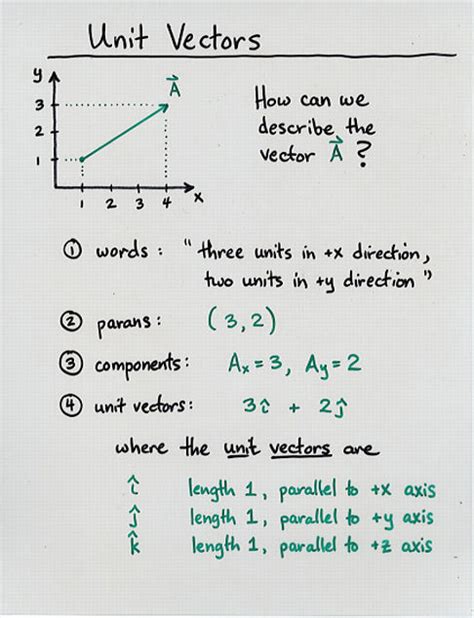 Unit Vectors
y
A⃗
3
2
1
1 2 3 4 x
How can we
describe the
vector A⃗ ?
① words : " three units in +x direction,
two units in +y direction "
② parans : (3,2)
③ components : Ax = 3, Ay = 2
④ unit vectors: 3î + 2ĵ
where the unit vectors are
î length 1, parallel to +x axis
ĵ length 1, parallel to +y axis
k̂ length 1, parallel to +z axis